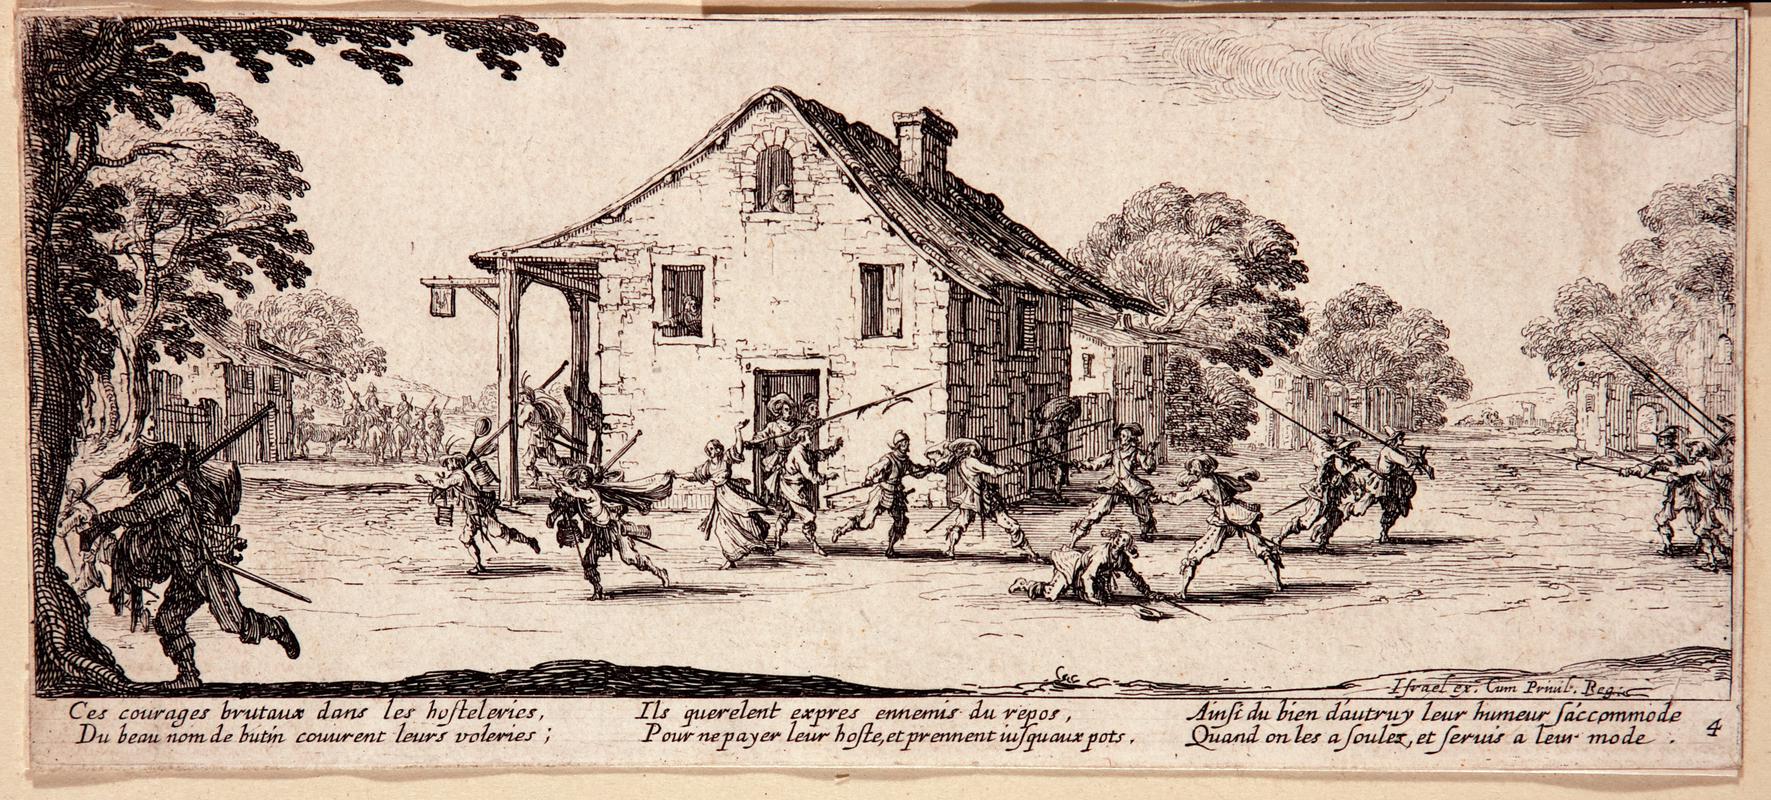 Israel ex. Cum Priuil. Reg.
Ces courages brutaux dans les hosteleries,
Du beau nom de butin couurent leurs voleries ;
Ils querelent expres ennemis du repos,
Pour ne payer leur hoste, et prennent iusqu aux pots.
Ainsi du bien d'autruy leur humeur s'accommode
Quand on les a soulez, et seruis a leur mode .
4